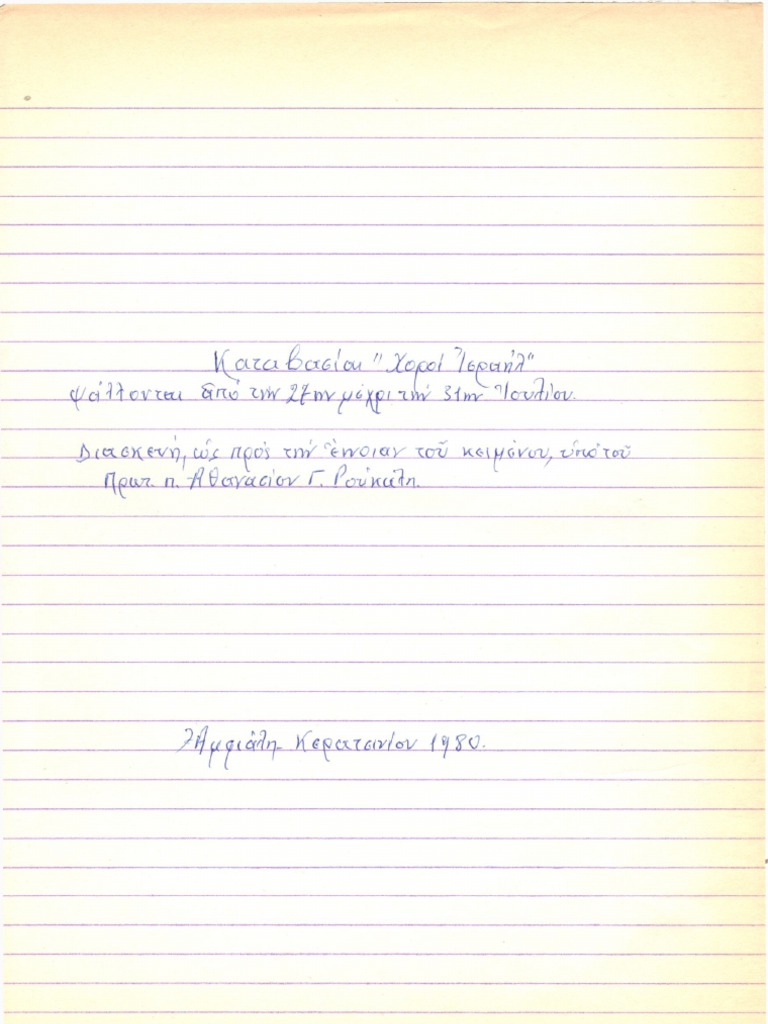 Καταβασίαι "Χοροί Ἰσραήλ"
Ψάλλονται ἀπό τήν 27ην μέχρι τήν 31ην Ἰουλίου.
Διασκευή, ὡς πρός τήν ἔννοιαν τοῦ κειμένου, ὑπό τοῦ
Πρωτ. π. Ἀθανασίου Γ. Ρούκαλη.
Ἀμφιάλη Κερατσινίου 1980.